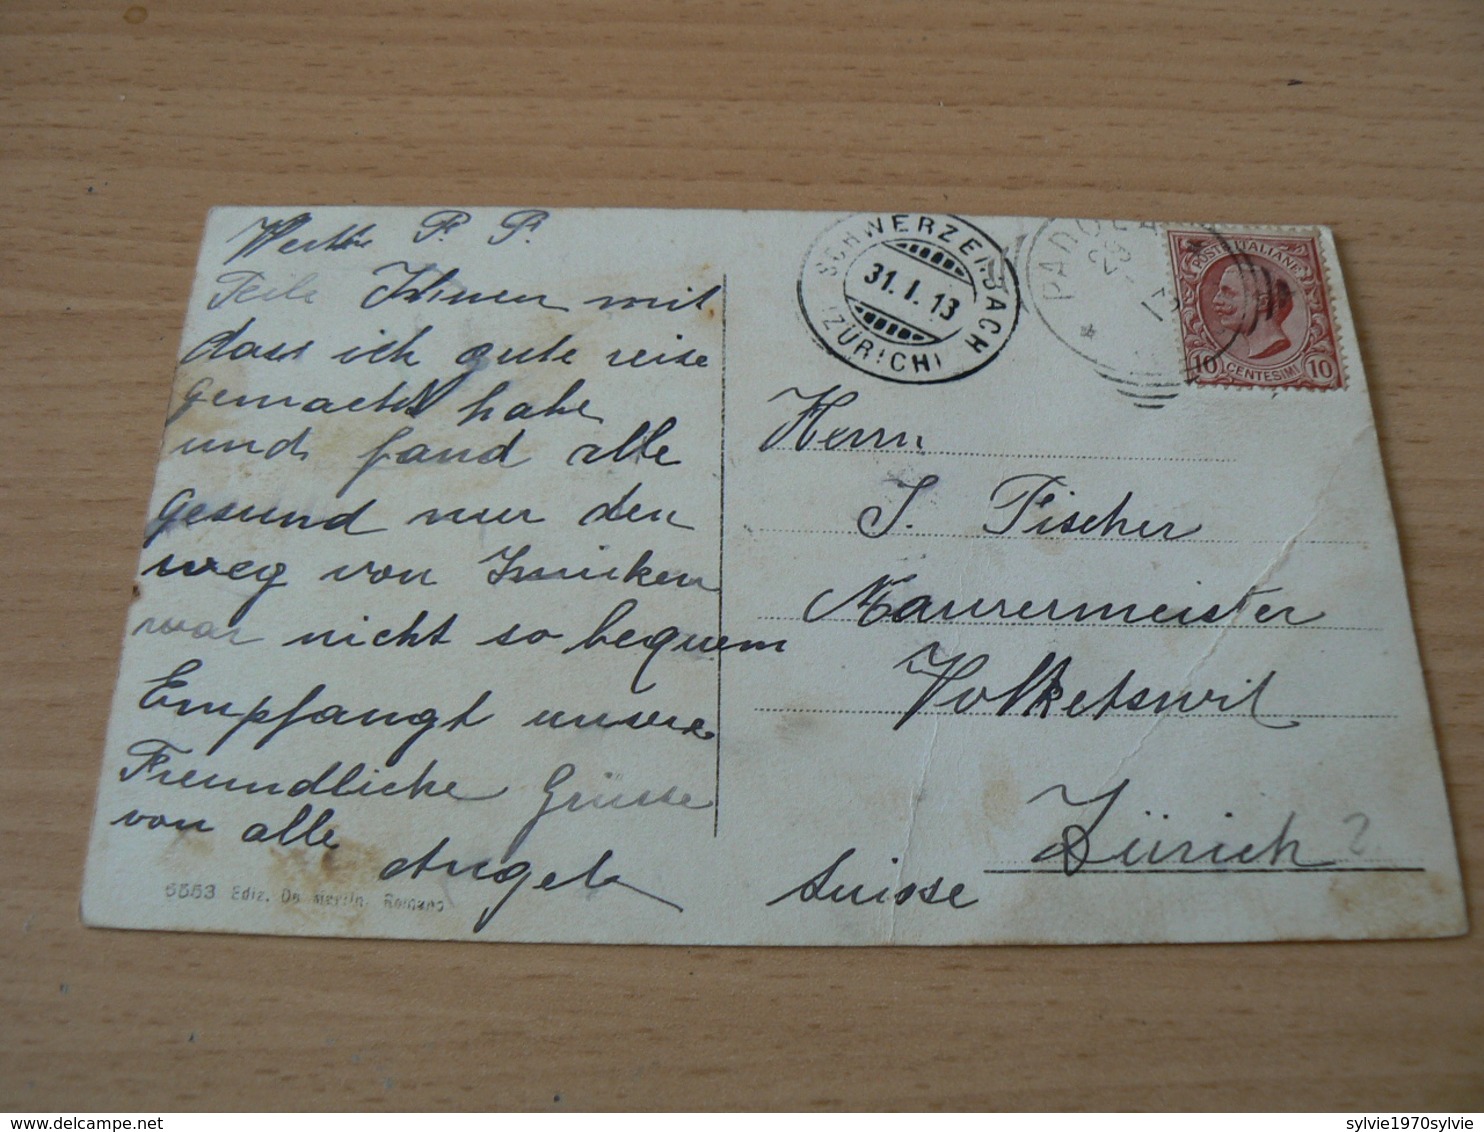 Werthe P. P.
Teile Ihnen mit
dass ich gute reise
gemacht habe
und fand alle
gesund nur den
weg von
war nicht so bequem
Empfangt unsere
Freundliche Grüsse
von alle
Angela
5553 Ediz. De Romano
SCHWERZENBACH
31.I.13
(ZÜRICH)
POSTE ITALIANE
10 CENTESIMI 10
Herrn
J. Fischer
Maurermeister
Volketswil
Zürich ?
Suisse
delcampe.net
sylvie1970sylvie